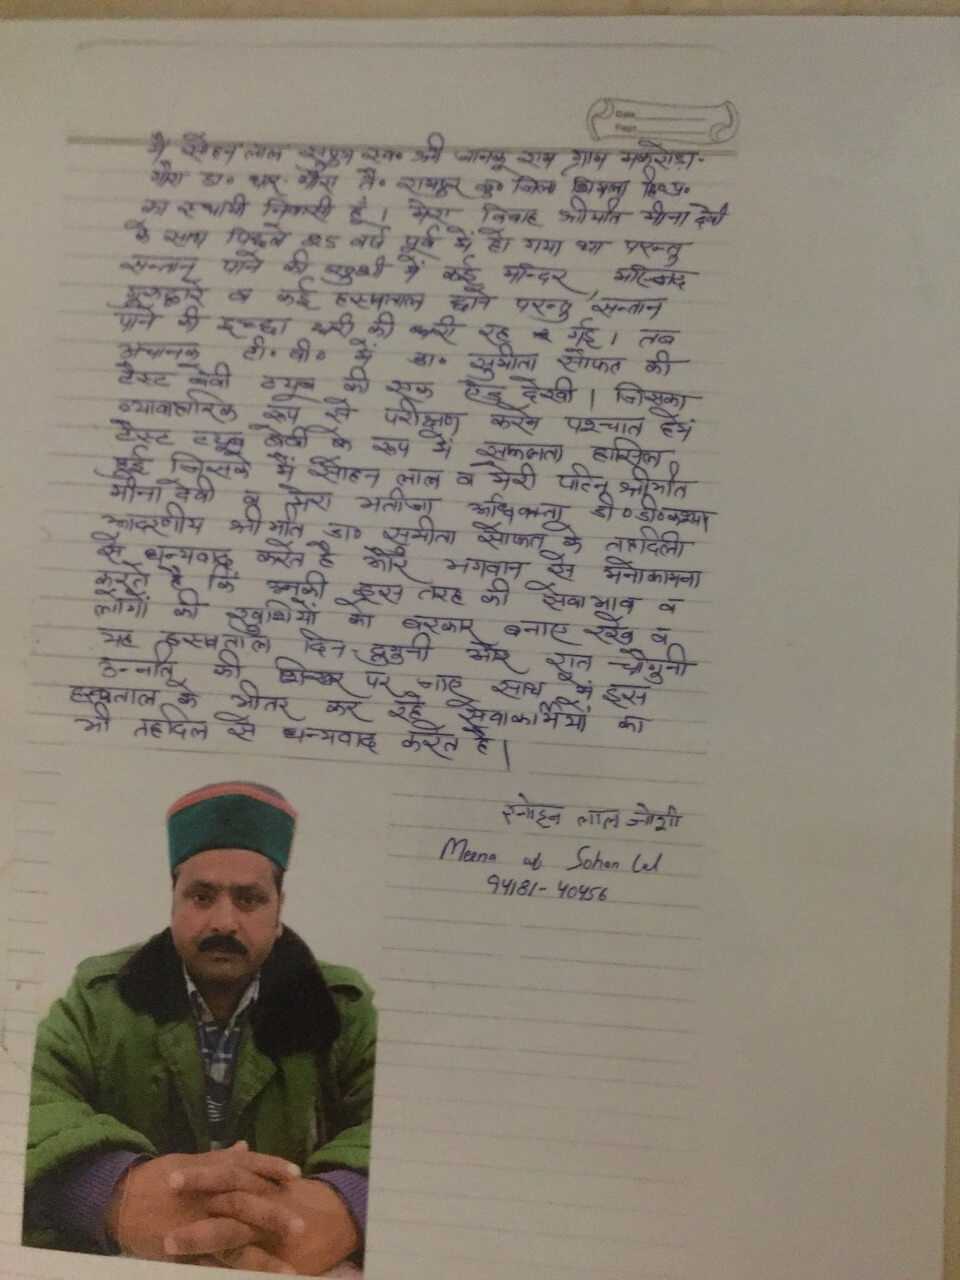 Date
Page
मै सोहन लाल सुपुत्र स्व० श्री जानकू राम ग्राम
डा० तै० जिला शिमला हि०प्र०
का स्थायी निवासी हूँ। मेरा विवाह श्रीमति मीना देवी
के साथ पिछले 25 वर्ष पूर्व में हो गया था परन्तु
सन्तान पाने की में कई मन्दिर
व कई हस्पाताल परन्तु सन्तान
पाने की इच्छा धरी की धरी रह गई। तब
अचानक टी० वी० में डा० सुमीता सोफत की
टैस्ट बेवी टयूब की एक देखी। जिसका
व्यावाहारिक रूप से परीक्षण करने पश्चात हमें
टैस्ट टयूब बेबी के रूप में सफलता हासिल
हुई जिसके मैं सोहन लाल व मेरी पत्नि श्रीमति
मीना देवी व मेरा भतीजा अधिवक्ता डी०डी०कश्यप
आदरणीय श्रीमति डा० सुमीता सोफत के तहदिली
से धन्यवाद करते है और भगवान से मनोकामना
करते है कि उनकी इस तरह की सेवा भाव व
लोगों की खुशियों को बरकार बनाए रखे व
यह हस्पताल दिन दुगुनी और रात चौगुनी
उन्नति की शिखर पर जाए साथ में इस
हस्पताल के भीतर कर रहे सेवाकर्मियों का
भी तहदिल से धन्यवाद करते है।
सोहन लाल जोशी
Meena w/o Sohan Lal
94181-40456